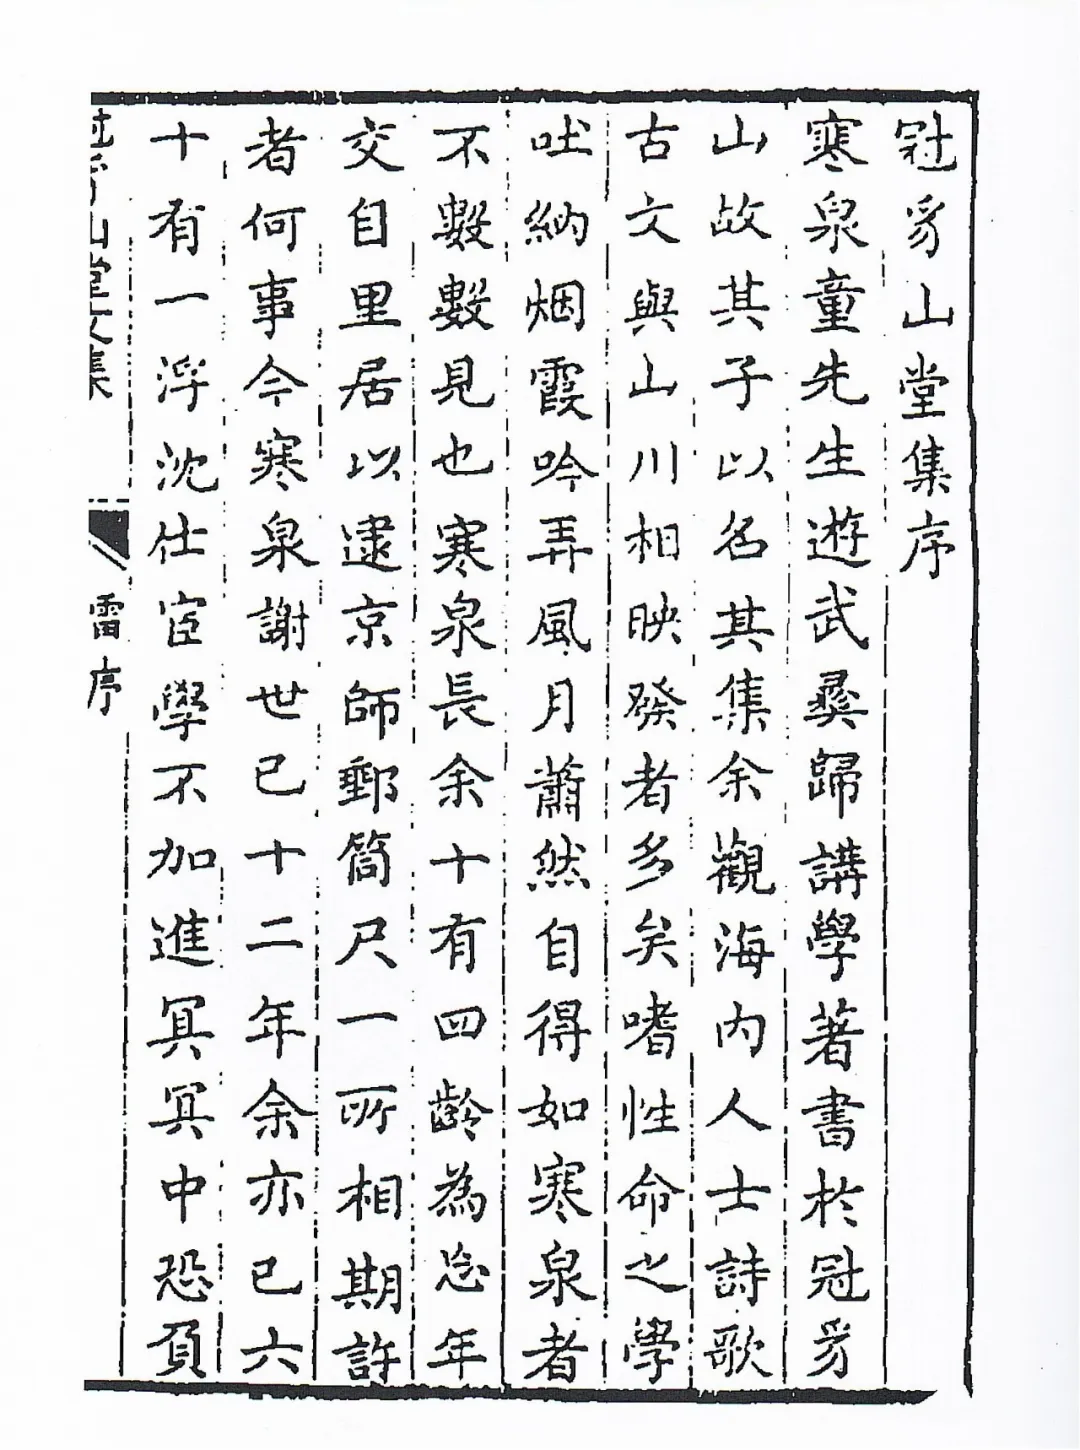 冠豸山堂集序
寒泉童先生遊武彛歸講學著書於冠豸
山故其子以名其集余觀海内人士詩歌
古文與山川相映發者多矣嗜性命之學
吐納烟霞吟弄風月蕭然自得如寒泉者
不數數見也寒泉長余十有四齡為忘年
交自里居以逮京師郵筒尺一所相期許
者何事今寒泉謝世已十二年余亦已六
十有一浮沈仕宦學不加進冥冥中恐負
冠豸山堂文集
雷序